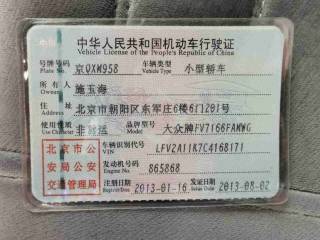 中华人民共和国机动车行驶证
Vehicle License of the People's Republic of China
号牌号码 Plate No. 京QXW958 车辆类型 Vehicle Type 小型轿车
所有人 Owner 施玉海
住址 Address 北京市朝阳区东军庄6楼6门201号
使用性质 Use Character 非营运 品牌型号 Model 大众牌FV7166FAMWG
北京市公安局公安交通管理局
车辆识别代号 VIN LFV2A11K7C4168171
发动机号码 Engine No. 865868
注册日期 Register Date 2013-01-16 发证日期 Issue Date 2013-08-02